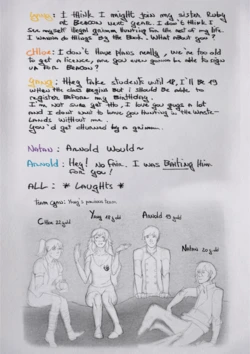 Yang: I think I might join my sister Ruby
at Beacon next year. I don't think I
see myself illegal grimm hunting for the rest of my life.
I wanna do things by the book. What about you?
Chloe: I don't have plans really, we're too old
to get a licence, are you even gonna be able to sign
up for Beacon?
Yang: They take students until 18, I'll be 19
when the class begins but I should be able to
register before my birthday.
I'm not sure yet tho, I love you guys a lot
and I don't want to have you hunting in the waste-
lands without me...
You'd get devoured by a grimm.
Natan: Arnold would~
Arnold: Hey! No fair. I was baiting him
for you!
ALL: * Laughts *
Team Cyan: Yang's previous team
Chloe 22 yold
Yang 18 yold
Arnold 19 yold
Natan 20 yold